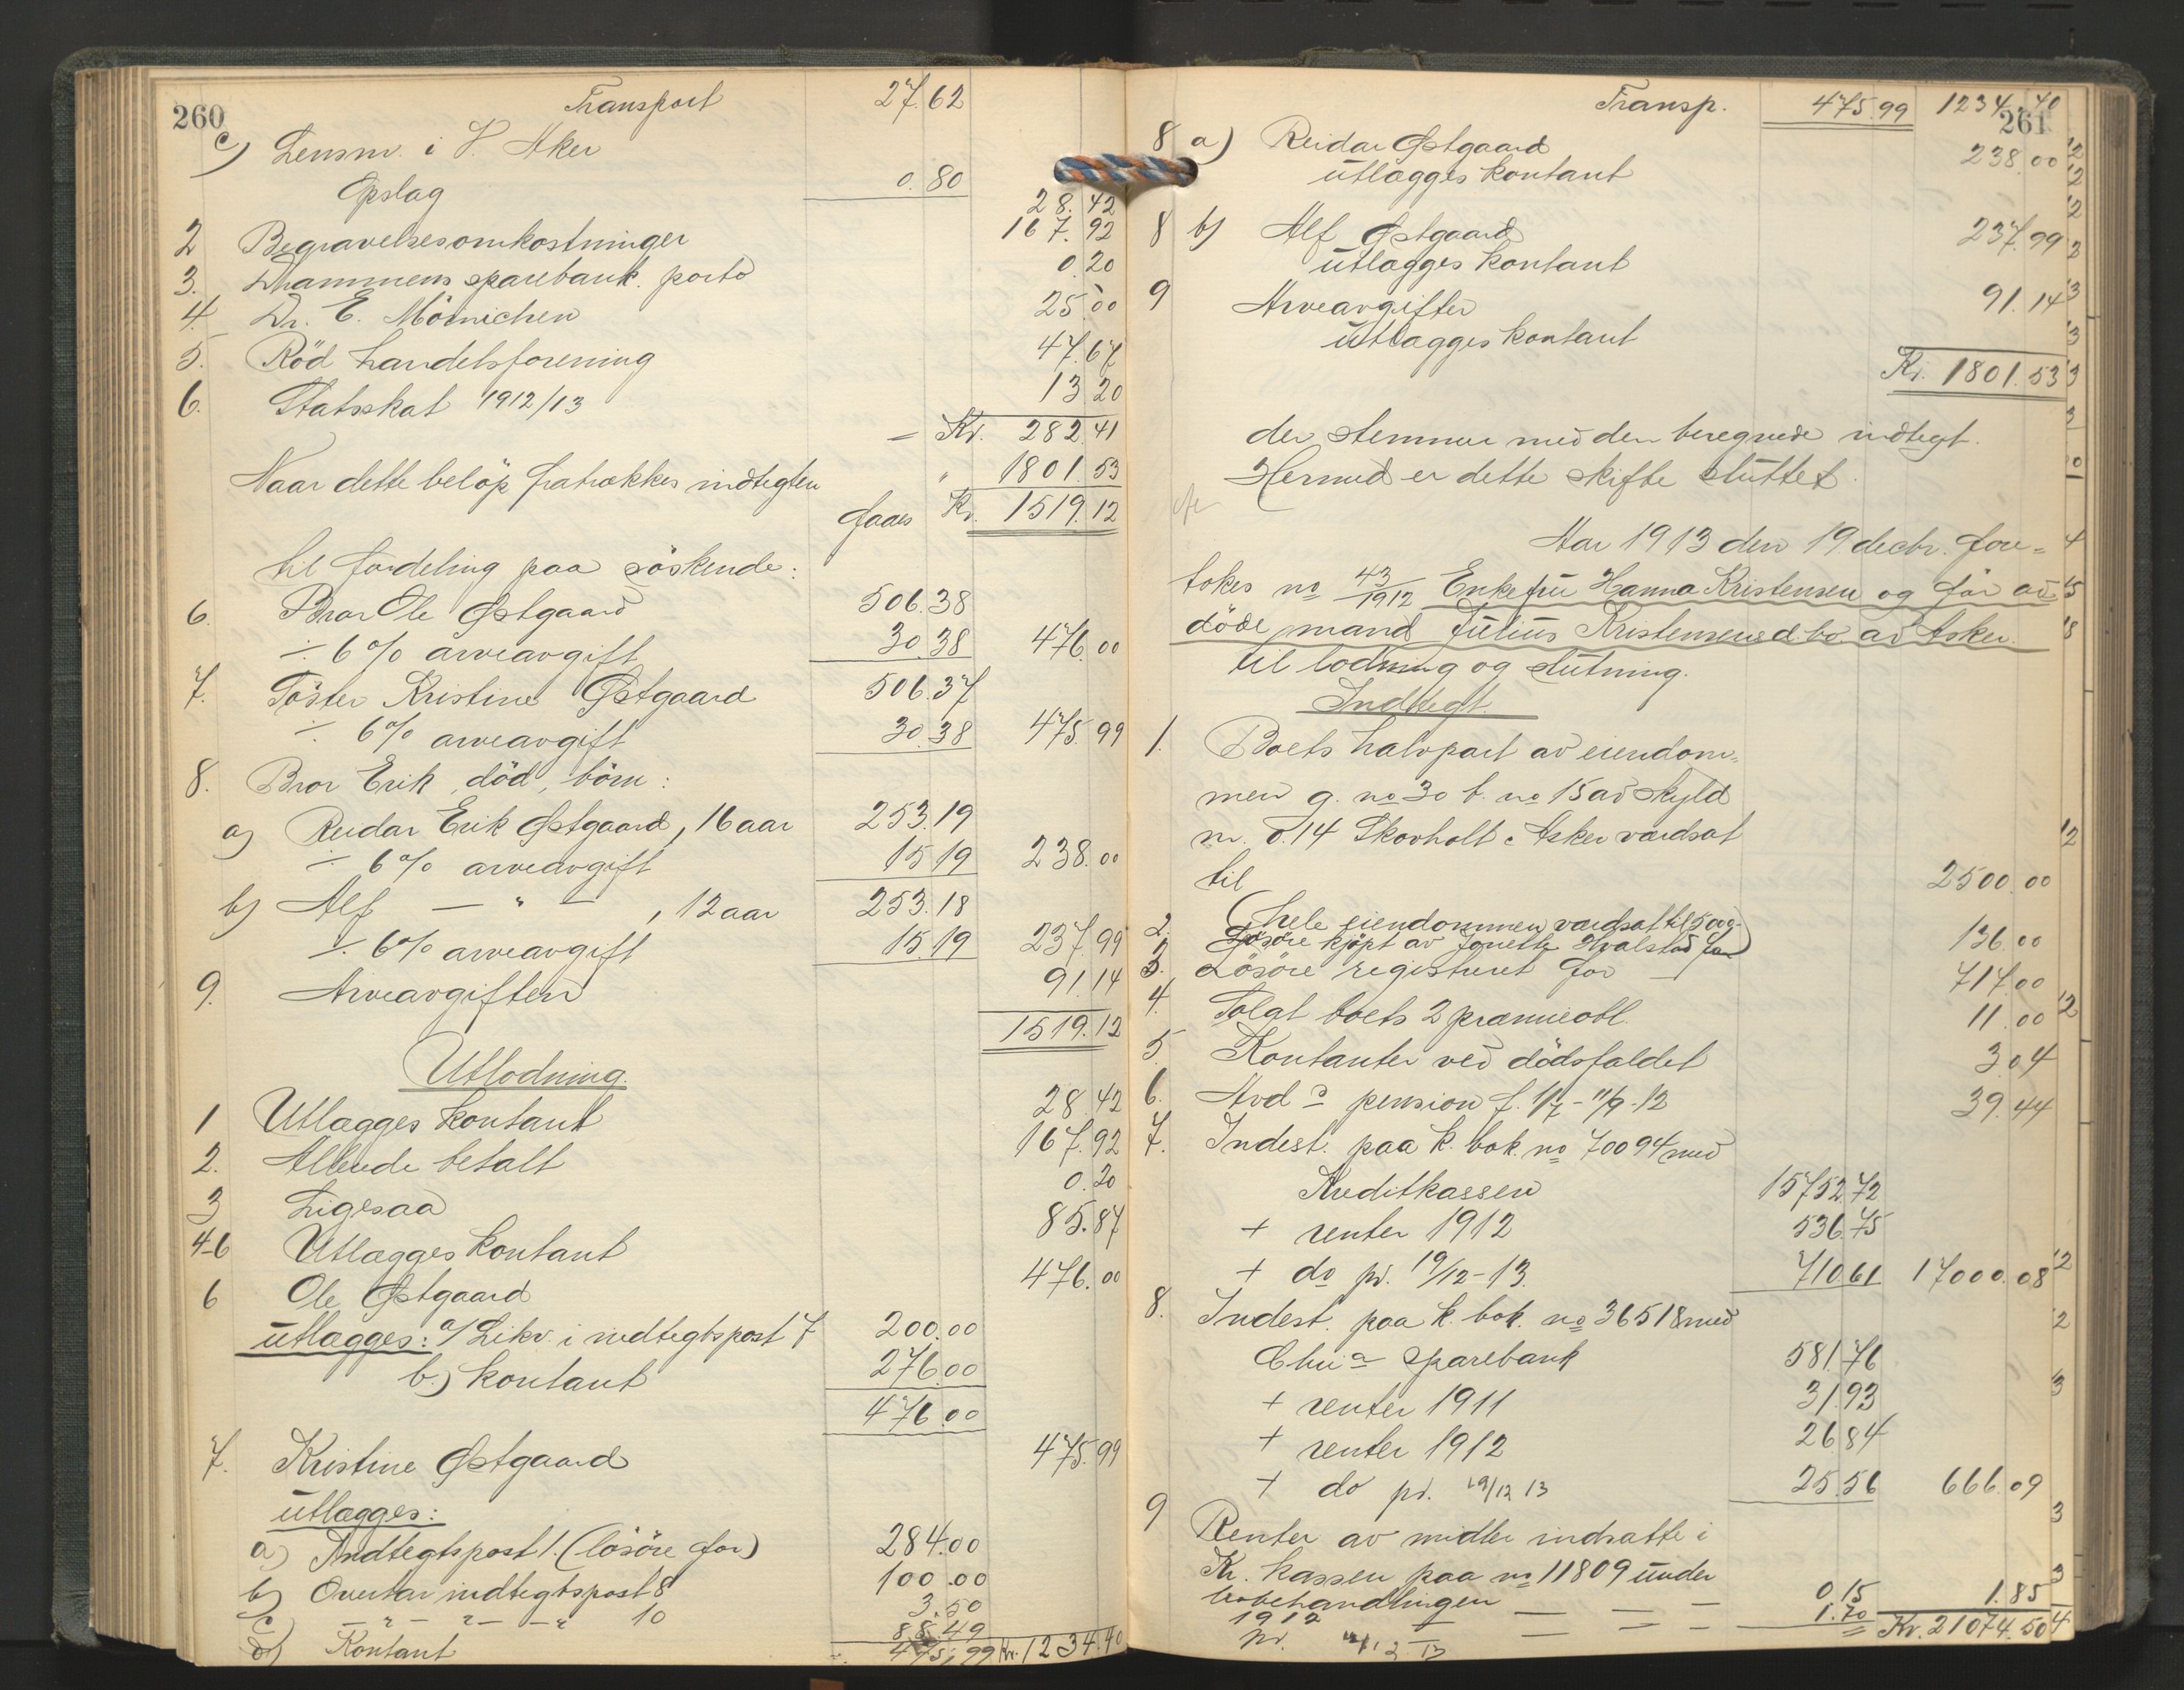 260
Transport 27.62
c) Lensm. i V. Aker
Opslag 0.80 28.42
2 Begravelsesomkostninger 167.92
3. Drammens sparebank. porto 0.20
4. Dr. E. Mörnichen 25.00
5. Röd handelsforening 47.67
6. Statsskat 1912/13 13.20
= Kr. 282.41
Naar dette belöp fratrækkes indtegten " 1801.53
faaes Kr. 1519.12
til fordeling paa söskende:
6. Bror Ole Østgaard 506.38
÷ 6 % arveavgift 30.38 476.00
7. Söster Kristine Østgaard 506.37
÷ 6 % arveavgift 30.38 475.99
8. Bror Erik, död, börn:
a) Reidar Erik Østgaard, 16 aar 253.19
÷ 6 % arveavgift 15.19 238.00
b) Alf — " —, 12 aar 253.18
÷ 6 % arveavgift 15.19 237.99
9. Arveavgiften 91.14
1519.12
Utlodning.
1 Utlægges kontant 28.42
2. Allerede betalt 167.92
3 Ligesaa 0.20
4-6 Utlægges kontant 85.87
6 Ole Østgaard 476.00
utlægges: a/ Likv. i indtegtspost 7 200.00
b.) kontant 276.00
476.00
7. Kristine Østgaard 475.99
utlægges:
a) Indtegtspost 1. (lösöre for) 284.00
b) Overtar indtegtspost 8 100.00
c) — " — " — " 10 3.50
d) Kontant 88.49
475,99 Kr. 1234.40
261
Transp. 475.99 1234.40
8 a) Reidar Østgaard 238.00
utlægges kontant
8 b) Alf Østgaard 237.99
utlægges kontant
9 Arveavgifter 91.14
utlægges kontant
Kr. 1801.53
der stemmer med den beregnede indtegt.
Hermed er dette skifte sluttet.
Aar 1913 den 19 decbr. fore-
tokes no 43/1912 Enkefru Hanna Kristensen og för av-
döde mand Julius Kristensens d. bo av Asker
til lodning og slutning.
Indtegt.
1. Boets halvpart av eiendom-
men g. no 30 b. no 15 av skyld
m. 0.14 Skovholt i Asker værdsat
til 2500.00
(hele eiendommen værdsat til 5000.-)
2. Lösöre kjöpt av Jonette Hvalstad for 136.00
3. Lösöre registreret for 717.00
4. Solgt boets 2 præmieobl. 11.00
5 Kontanter ved dödsfaldet 3.04
6. Avd s pension f. 1/7 - 11/9 - 12 39.44
7. Indest. paa k. bok. no 70094 med
Kreditkassen 15752.72
+ renter 1912 536.75
+ do pr. 19/12 - 13. 710.61 17000.08
8. Indest. paa k. bok. no 36518 med
Chr.a Sparebank 581.76
+ renter 1911 31.93
+ renter 1912 26.84
+ do pr. 19/12 13 25.56 666.09
9 Renter av midler indsatte i
Kr. kassen paa no 11809 under
bobehandlingen
1912 — — — 0.15 1.85
pr. 19/12 13 — — — 1.70 Kr. 21074.50